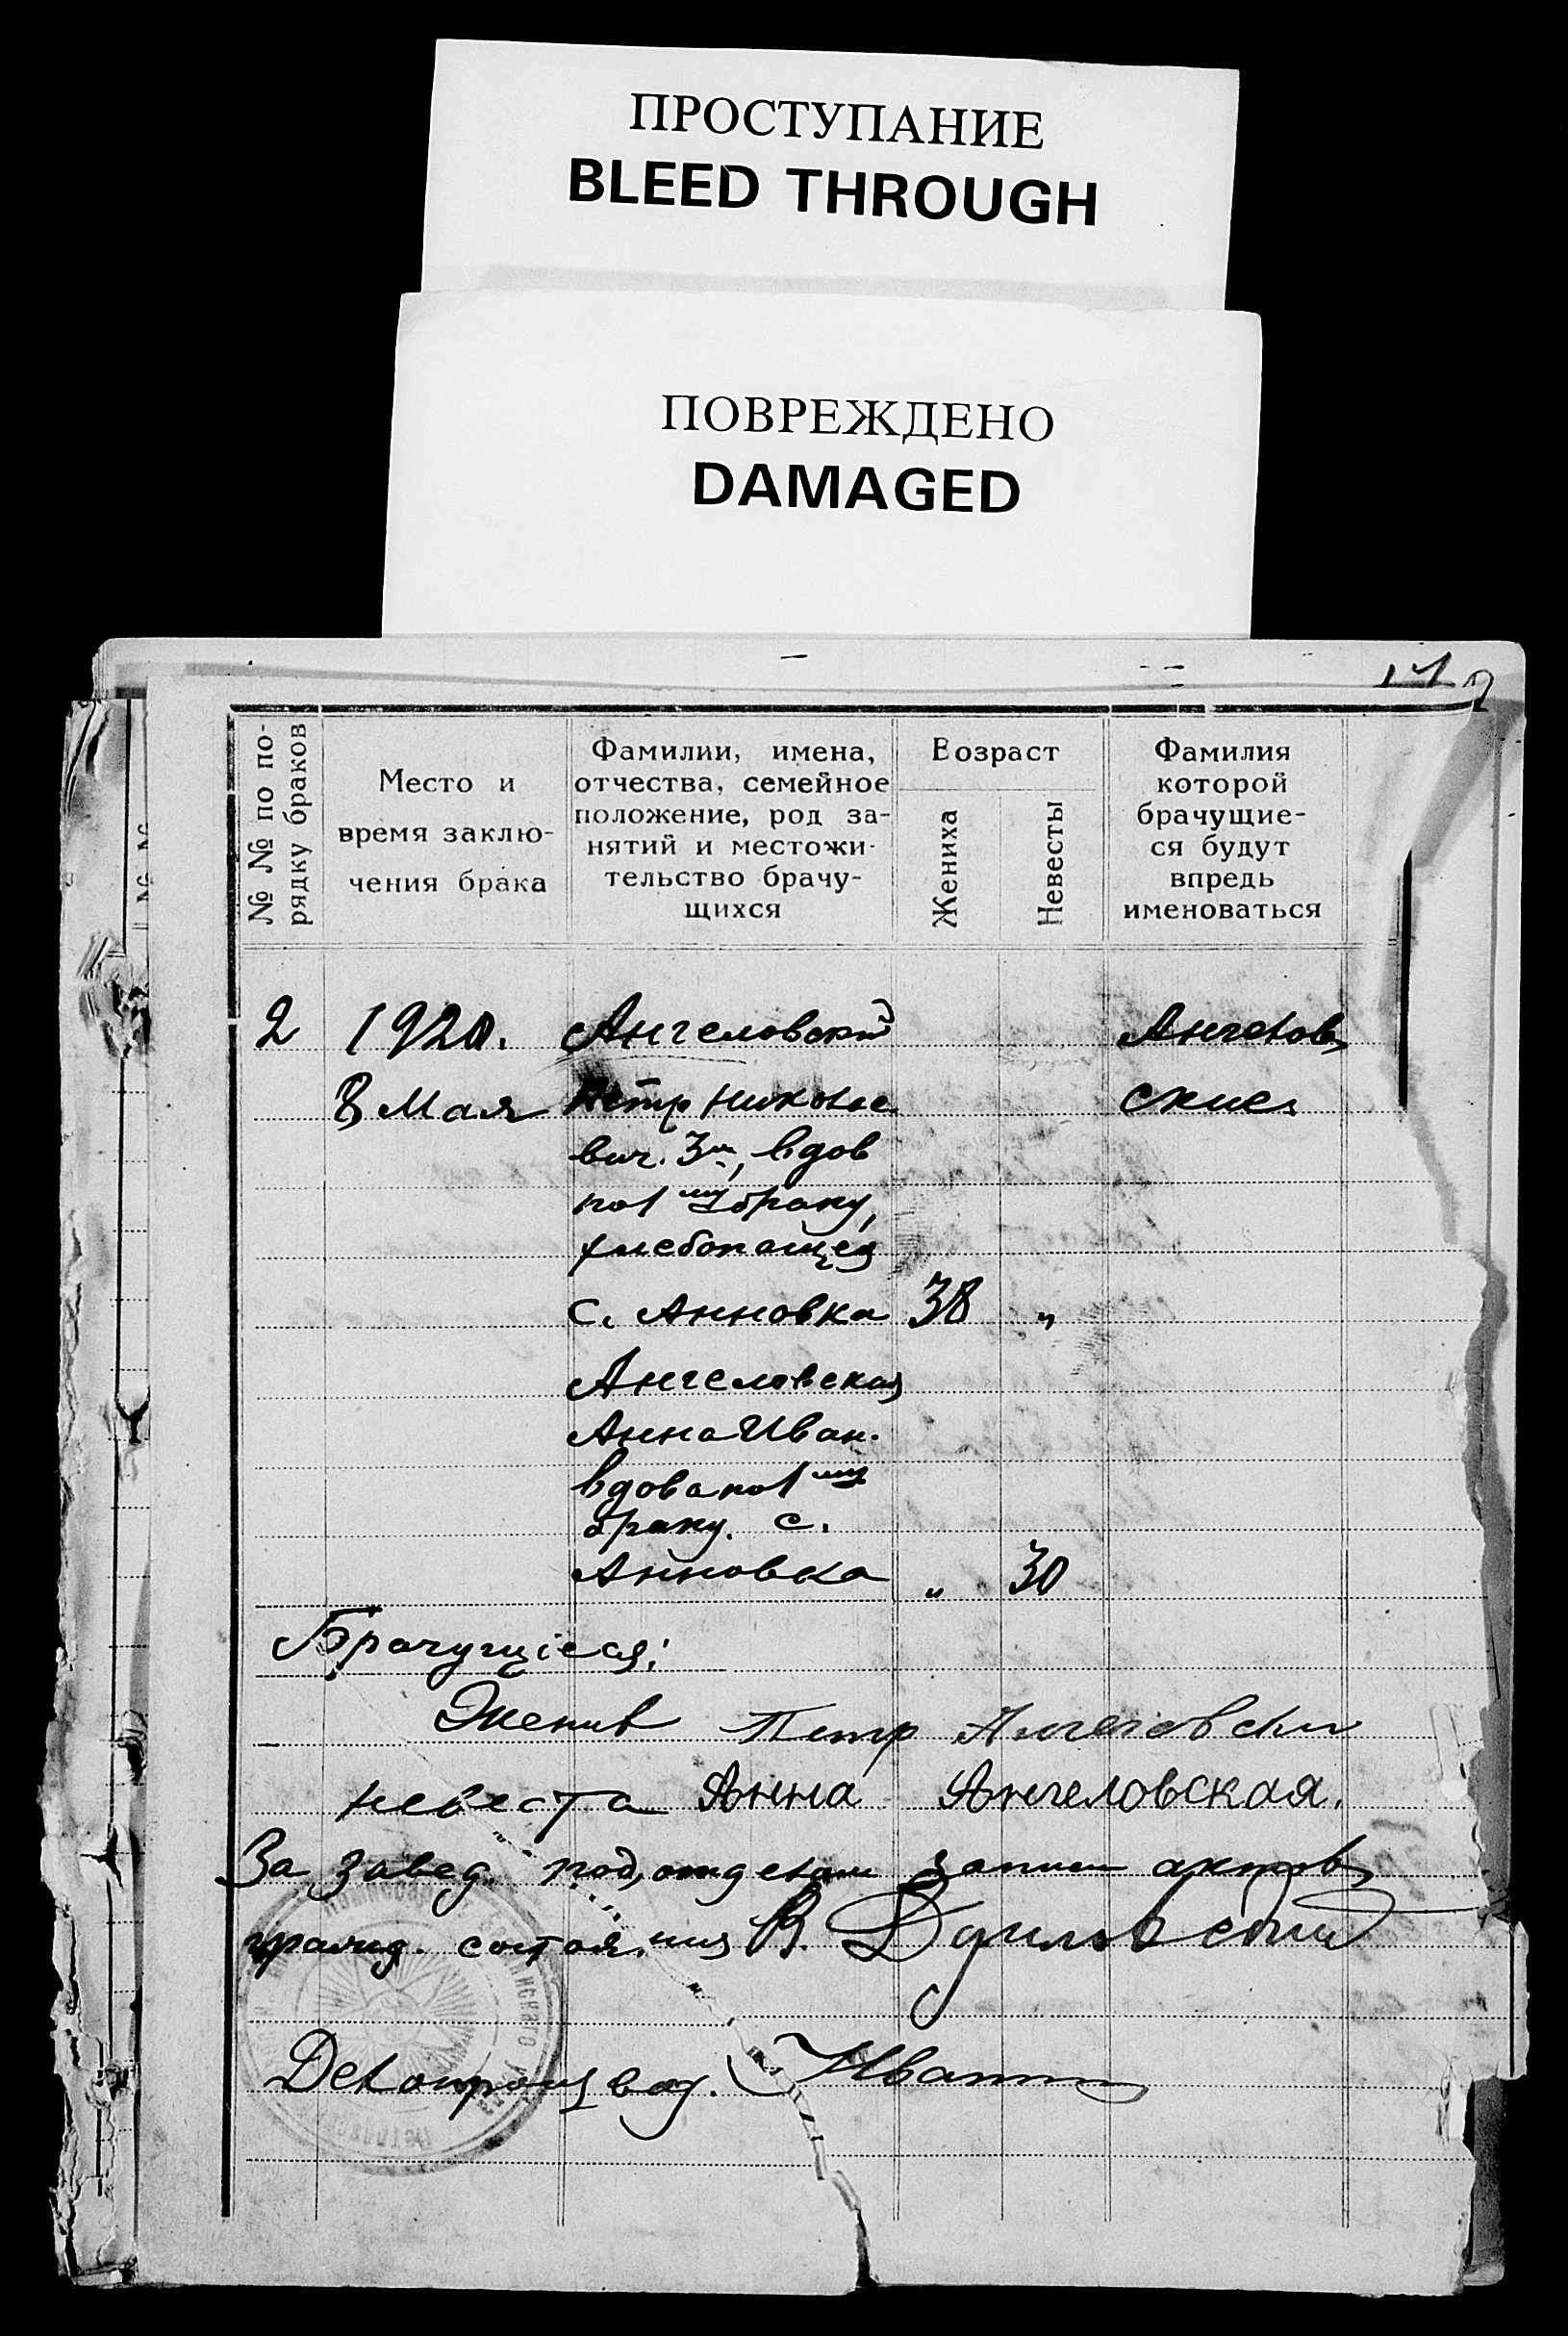 ПРОСТУПАНИЕ
BLEED THROUGH
ПОВРЕЖДЕНО
DAMAGED
№ № по по-
рядку браков
Место и
время заклю-
чения брака
Фамилии, имена,
отчества, семейное
положение, род за-
нятий и местожи-
тельство брачу-
щихся
Возраст
Жениха
Невесты
Фамилия
которой
брачущие-
ся будут
впредь
именоваться
2 1920. Ангеловский Ангелов
8 Мая Петр Николае ские
вич. 3м, вдов
по 1 му браку,
хлебопашец
с. Анновка 38 "
Ангеловская
Анна Иван.
вдова по 1 му
браку. с.
Анновка " 30
Брачущіеся:
Жених Петр Ангеловски
невеста Анна Ангеловская.
За завед. подотделом записи актов
гражд. состояния В.
Делопроизвод.